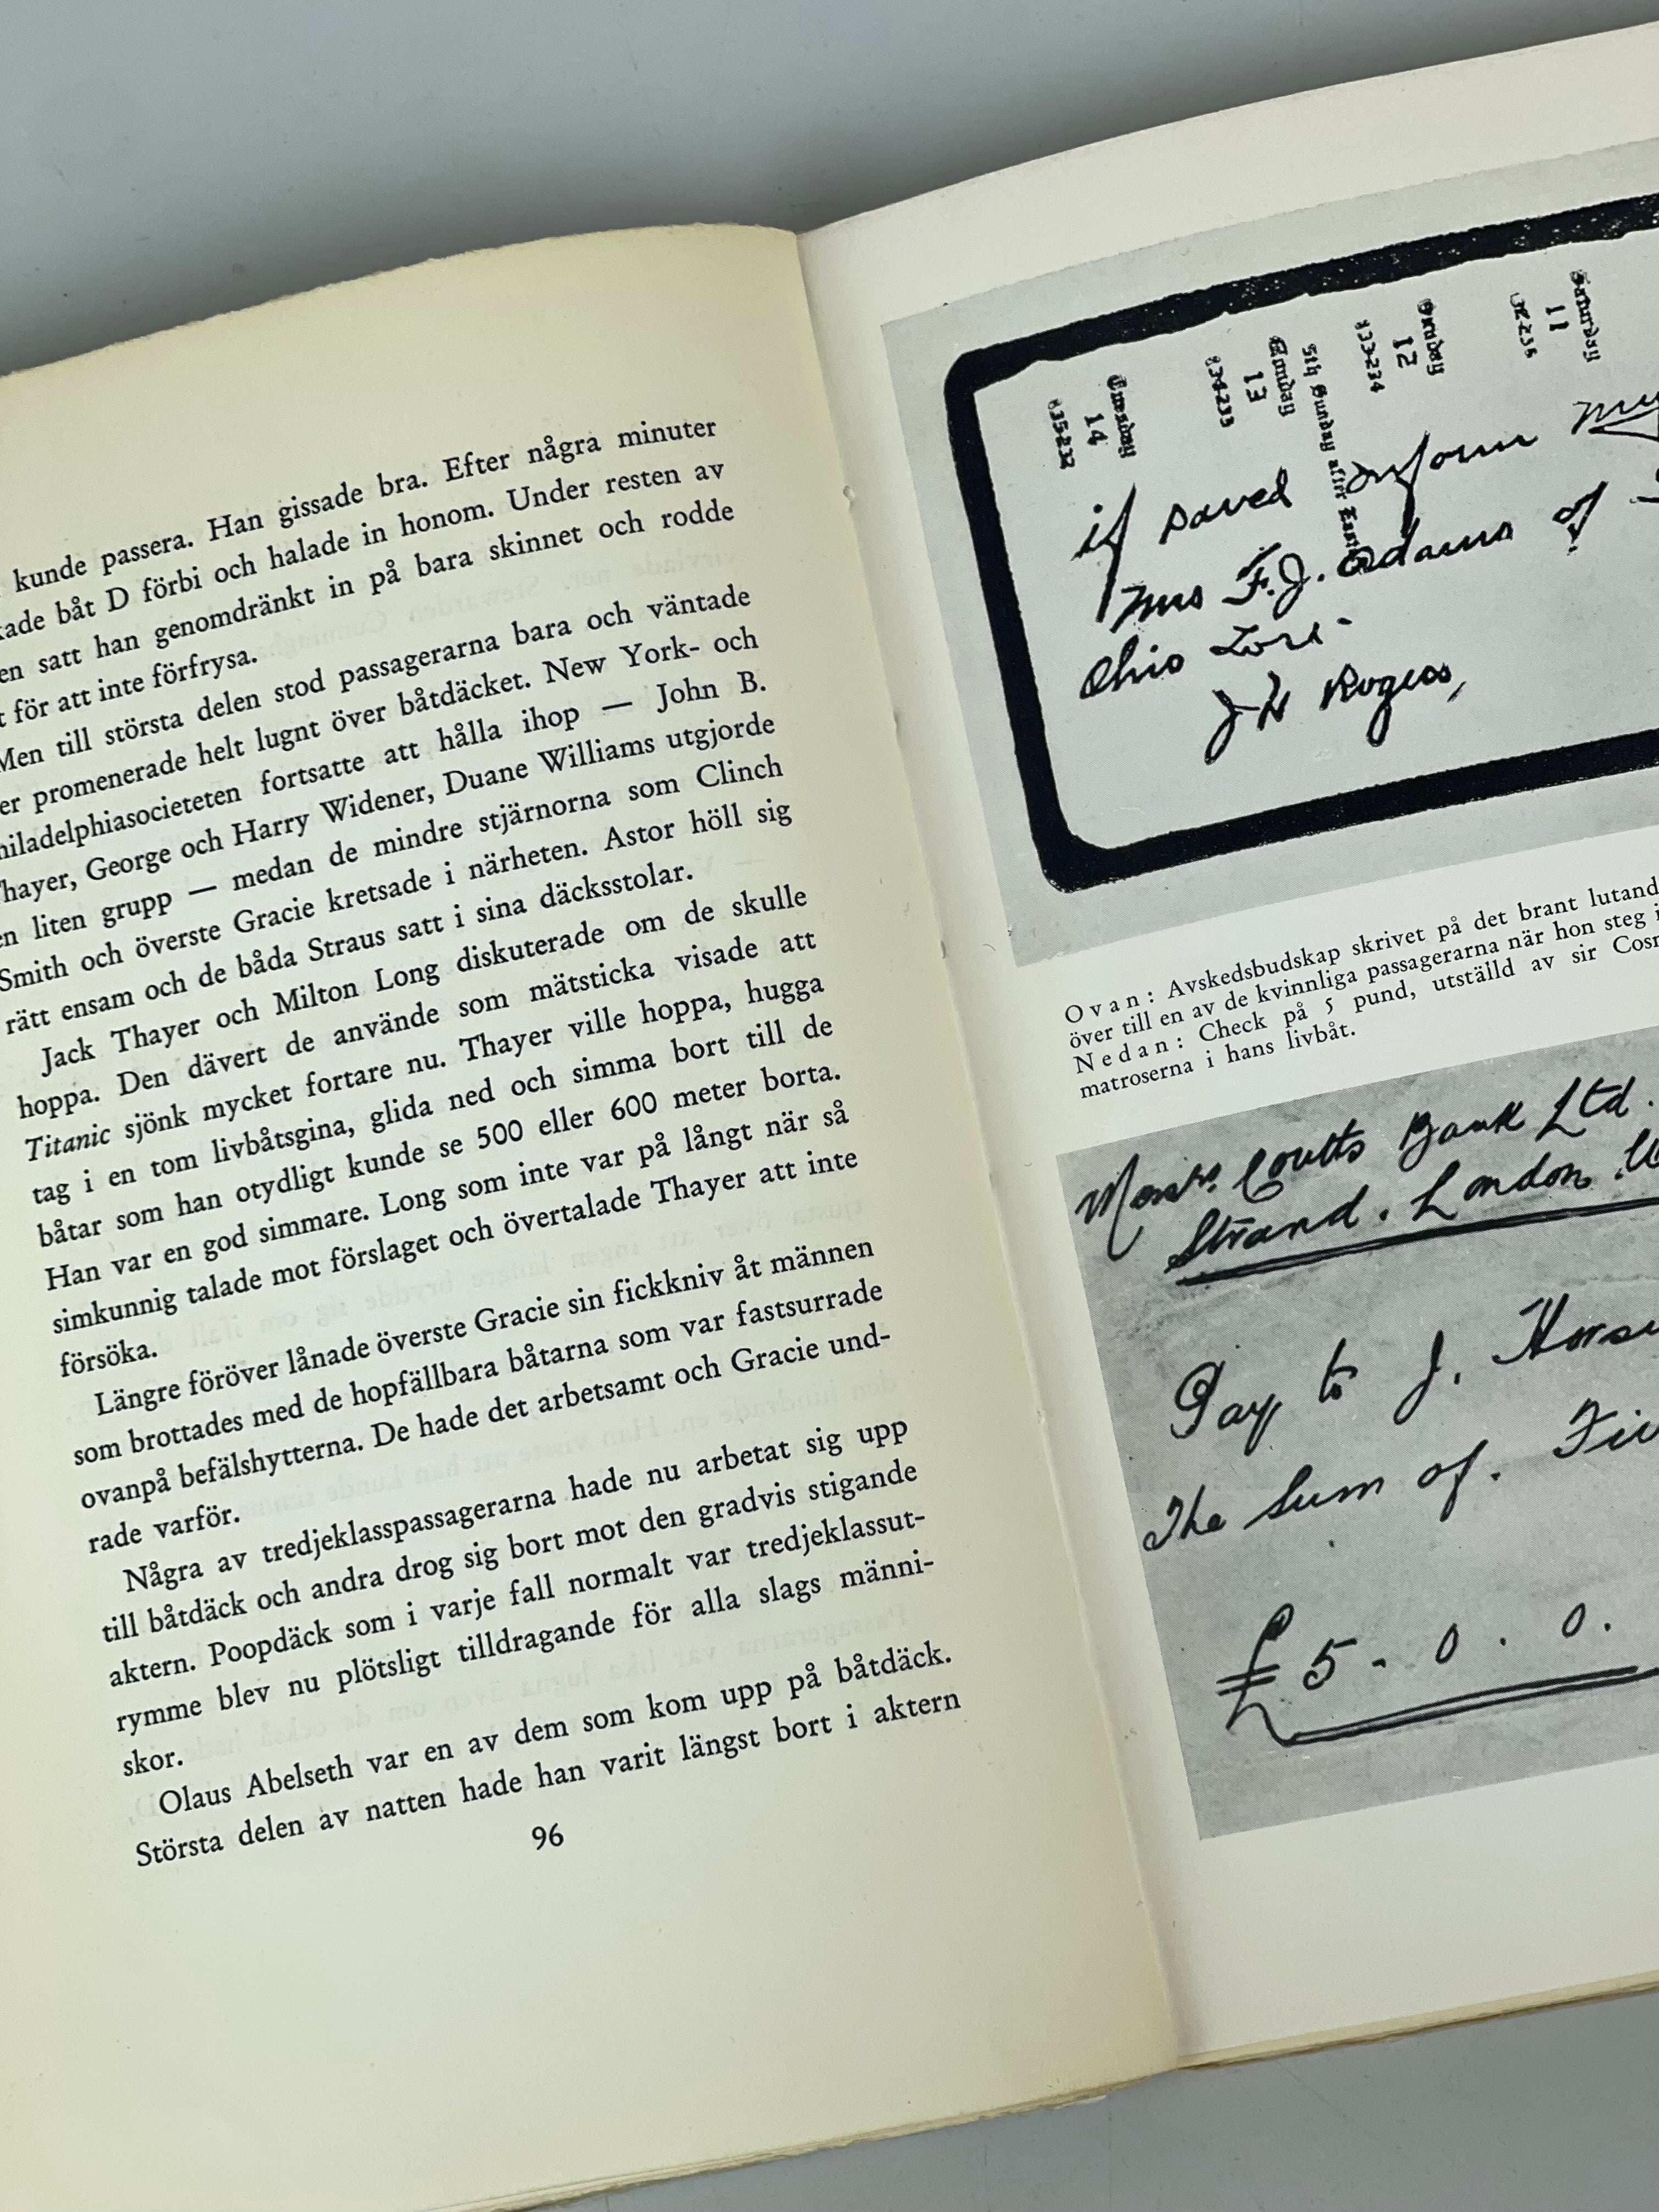 kunde passera. Han gissade bra. Efter några minuter
båt D förbi och halade in honom. Under resten av
satt han genomdränkt in på bara skinnet och rodde
för att inte förfrysa.
Men till största delen stod passagerarna bara och väntade
er promenerade helt lugnt över båtdäcket. New York- och
hiladelphiasocieteten fortsatte att hålla ihop — John B.
Thayer, George och Harry Widener, Duane Williams utgjorde
en liten grupp — medan de mindre stjärnorna som Clinch
Smith och överste Gracie kretsade i närheten. Astor höll sig
rätt ensam och de båda Straus satt i sina däcksstolar.
Jack Thayer och Milton Long diskuterade om de skulle
hoppa. Den dävert de använde som mätsticka visade att
Titanic sjönk mycket fortare nu. Thayer ville hoppa, hugga
tag i en tom livbåtsgina, glida ned och simma bort till de
båtar som han otydligt kunde se 500 eller 600 meter borta.
Han var en god simmare. Long som inte var på långt när så
simkunnig talade mot förslaget och övertalade Thayer att inte
försöka.
Längre föröver lånade överste Gracie sin fickkniv åt männen
som brottades med de hopfällbara båtarna som var fastsurrade
ovanpå befälshytterna. De hade det arbetsamt och Gracie und-
rade varför.
Några av tredjeklasspassagerarna hade nu arbetat sig upp
till båtdäck och andra drog sig bort mot den gradvis stigande
aktern. Poopdäck som i varje fall normalt var tredjeklassut-
rymme blev nu plötsligt tilldragande för alla slags männi-
skor.
Olaus Abelseth var en av dem som kom upp på båtdäck.
Största delen av natten hade han varit längst bort i aktern
96
Saturday
11
Sunday
12
133-234
5th Sunday after
Monday
13
134-233
Tuesday
14
135-232
if saved inform
Mrs F. J. Adams of
Ohio
J H Rogers,
Ovan: Avskedsbudskap skrivet på det brant lutand
över till en av de kvinnliga passagerarna när hon steg i
Nedan: Check på 5 pund, utställd av sir Cosm
matroserna i hans livbåt.
Messrs. Coutts Bank Ltd.
Strand. London.
Pay to J. Hors
The Sum of. Fiv
£5 - 0 . 0.